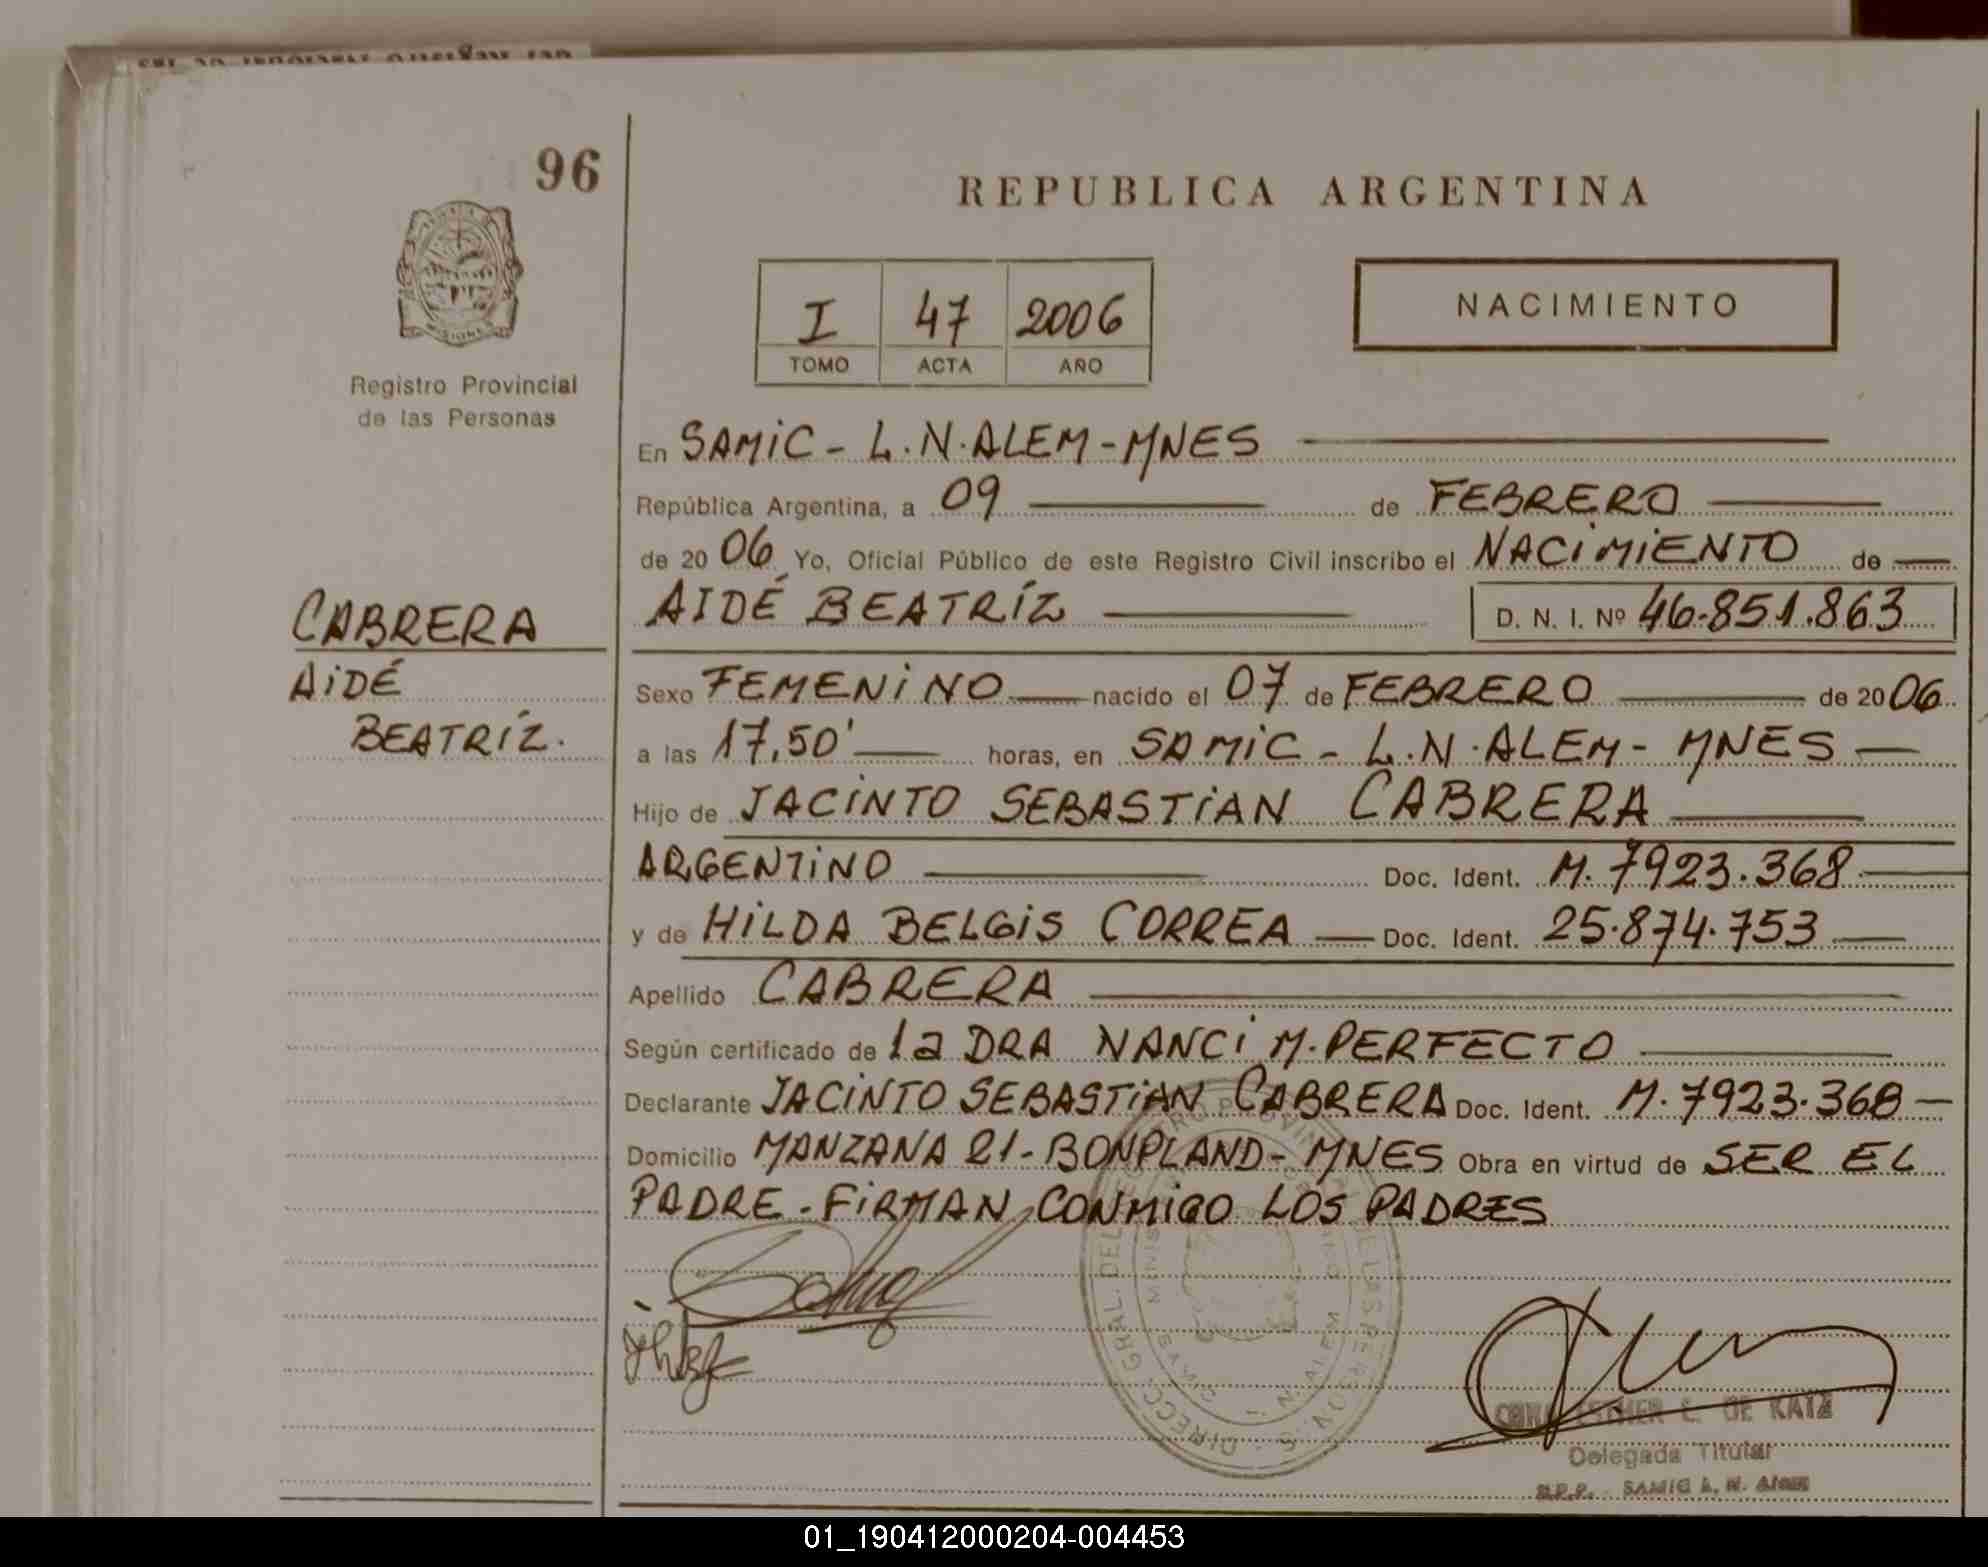 96
REPUBLICA ARGENTINA
I 47 2006
TOMO ACTA AÑO
NACIMIENTO
Registro Provincial
de las Personas
En SAMIC - L.N.ALEM - MNES
República Argentina, a 09 de FEBRERO
de 2006 Yo, Oficial Público de este Registro Civil inscribo el NACIMIENTO de
AIDÉ BEATRÍZ D. N. I. Nº 46.851.863
CABRERA
AIDÉ
BEATRÍZ.
Sexo FEMENINO nacido el 07 de FEBRERO de 2006
a las 17,50' horas, en SAMIC - L.N.ALEM - MNES
Hijo de JACINTO SEBASTIAN CABRERA
ARGENTINO Doc. Ident. M. 7923.368
y de HILDA BELGIS CORREA Doc. Ident. 25.874.753
Apellido CABRERA
Según certificado de la DRA NANCI M. PERFECTO
Declarante JACINTO SEBASTIAN CABRERA Doc. Ident. M. 7923.368
Domicilio MANZANA 21 - BONPLAND - MNES Obra en virtud de SER EL
PADRE. FIRMAN CONMIGO LOS PADRES
ESTHER C. DE KATZ
Delegada Titular
R.P.P. SAMIC L. N. Alem
01_190412000204-004453